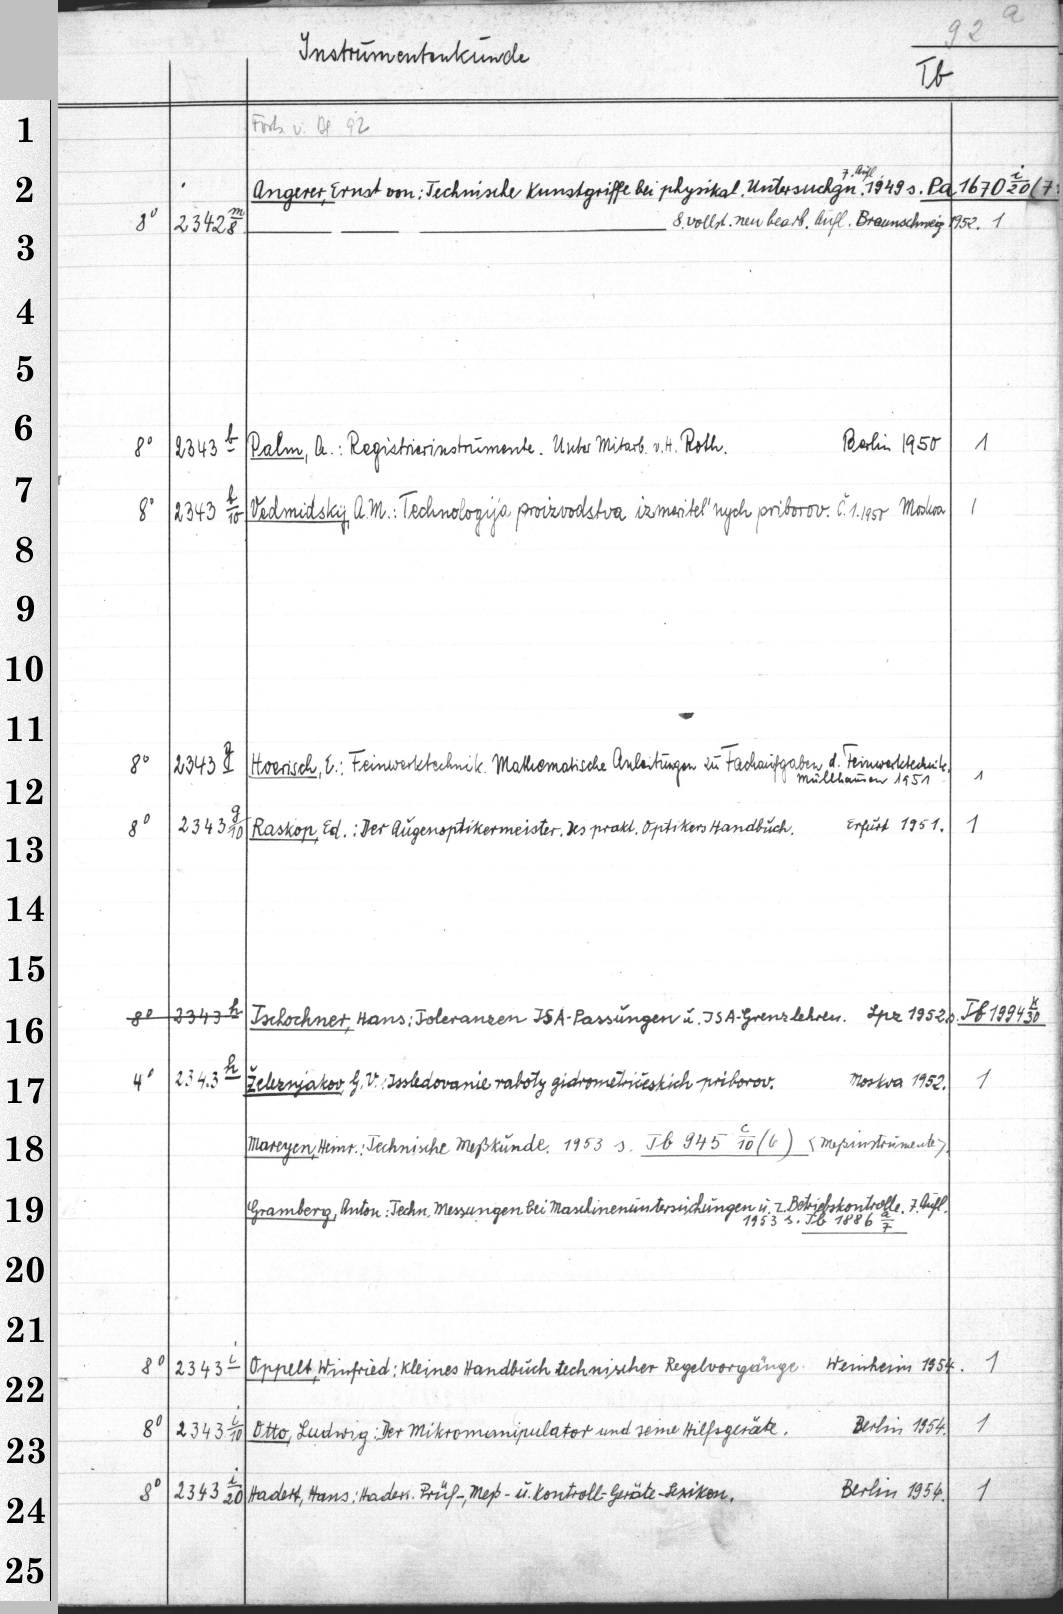 92 a
Instrumentenkunde
Tb
1
Forts. v. Bl 92
2
7. Aufl.
Angerer, Ernst von: Technische Kunstgriffe bei physikal. Untersuchgn. 1949 s. Pa 1670 i/20 (7
8° 2342 m/8 8. vollst. neu bearb. Aufl. Braunschweig 1952. 1
3
4
5
6
8° 2343 b Palm, A.: Registrierinstrumente. Unter Mitarb. v. H. Roth. Berlin 1950 1
7
8° 2343 b/10 Vedmidskij, A.M.: Technologija proizvodstva izmeritel'nych priborov. Č. 1. 1950 Moskva 1
8
9
10
11
8° 2343 g Hoerisch, E.: Feinwerktechnik. Mathematische Anleitungen zu Fachaufgaben d. Feinwerktechnik.
12
Müllhausen 1951 1
8° 2343 g/10 Raskop, Ed.: Der Augenoptikermeister. Des prakt. Optikers Handbuch. Erfurt 1951. 1
13
14
15
16
8° 2343 h Tschochner, Hans: Toleranzen ISA-Passungen u. ISA-Grenzlehren. Lpz 1952 s. Tb 1994 k/30
17
4° 2343 h Železnjakov, G.V.: Issledovanie raboty gidrometričeskich priborov. Moskva 1952. 1
18
Mareyen, Heinr.: Technische Meßkunde. 1953 s. Tb 945 c/10 (6) <Meßinstrumente>.
19
Gramberg, Anton: Techn. Messungen bei Maschinenuntersuchungen u. z. Betriebskontrolle. 7. Aufl.
1953 s. Tb 1886 a/7
20
21
22
8° 2343 i Oppelt, Winfried: Kleines Handbuch technischer Regelvorgänge. Weinheim 1954. 1
23
8° 2343 i/10 Otto, Ludwig: Der Mikromanipulator und seine Hilfsgeräte. Berlin 1954. 1
24
8° 2343 i/20 Hadert, Hans: Haders. Prüf-, Meß- u. Kontroll-Geräte-Lexikon. Berlin 1954. 1
25